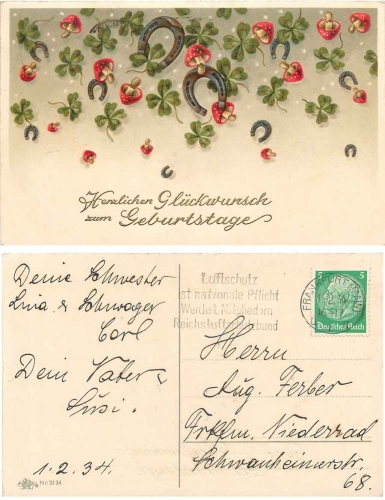 Herzlichen Glückwunsch
zum Geburtstage
Deine Schwester
Lina & Schwager
Carl
Dein Vater &
Susi.
1.2.34.
Nr. 3134
Luftschutz
ist nationale Pflicht
Werdet Mitglied im
Reichsluftschutzbund
FRANKFURT (MAIN)
5 5
Deutsches Reich
Herrn
Aug. Ferber
Frkfm. Niederrad
Schwanheimerstr.
68.